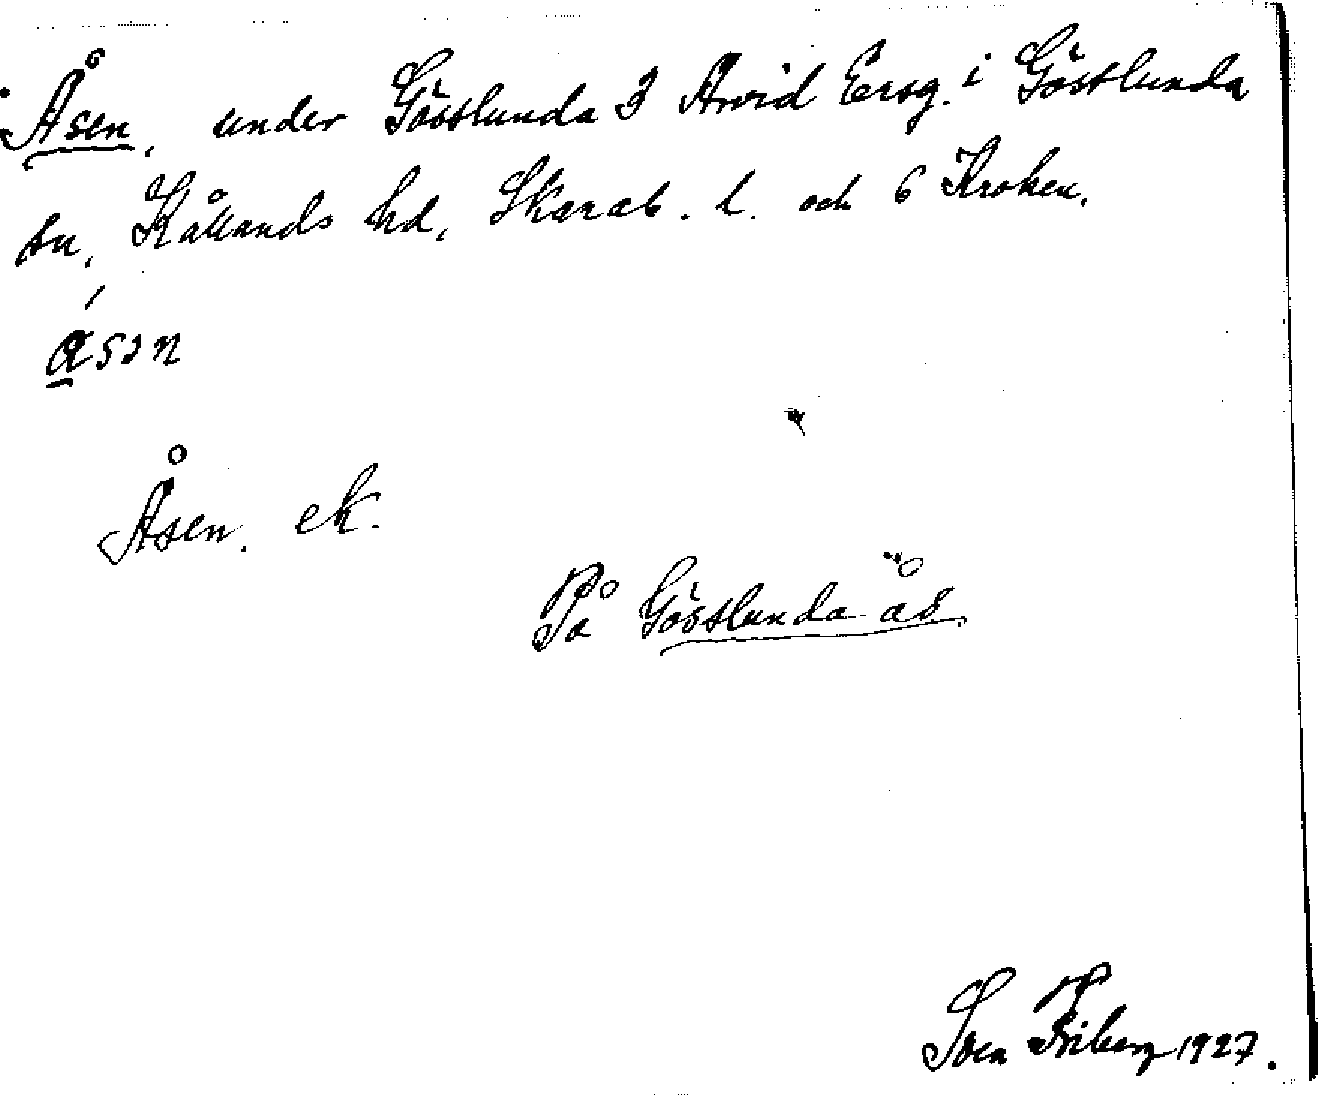 Åsen, under Gösslunda 3 Arvid Ersg. i Gösslunda
sn, Kållands hd, Skarab. l. och 6 Kroken.
åsən
Åsen. ek.
På Gösslunda ås.
Sven Friberg 1927.